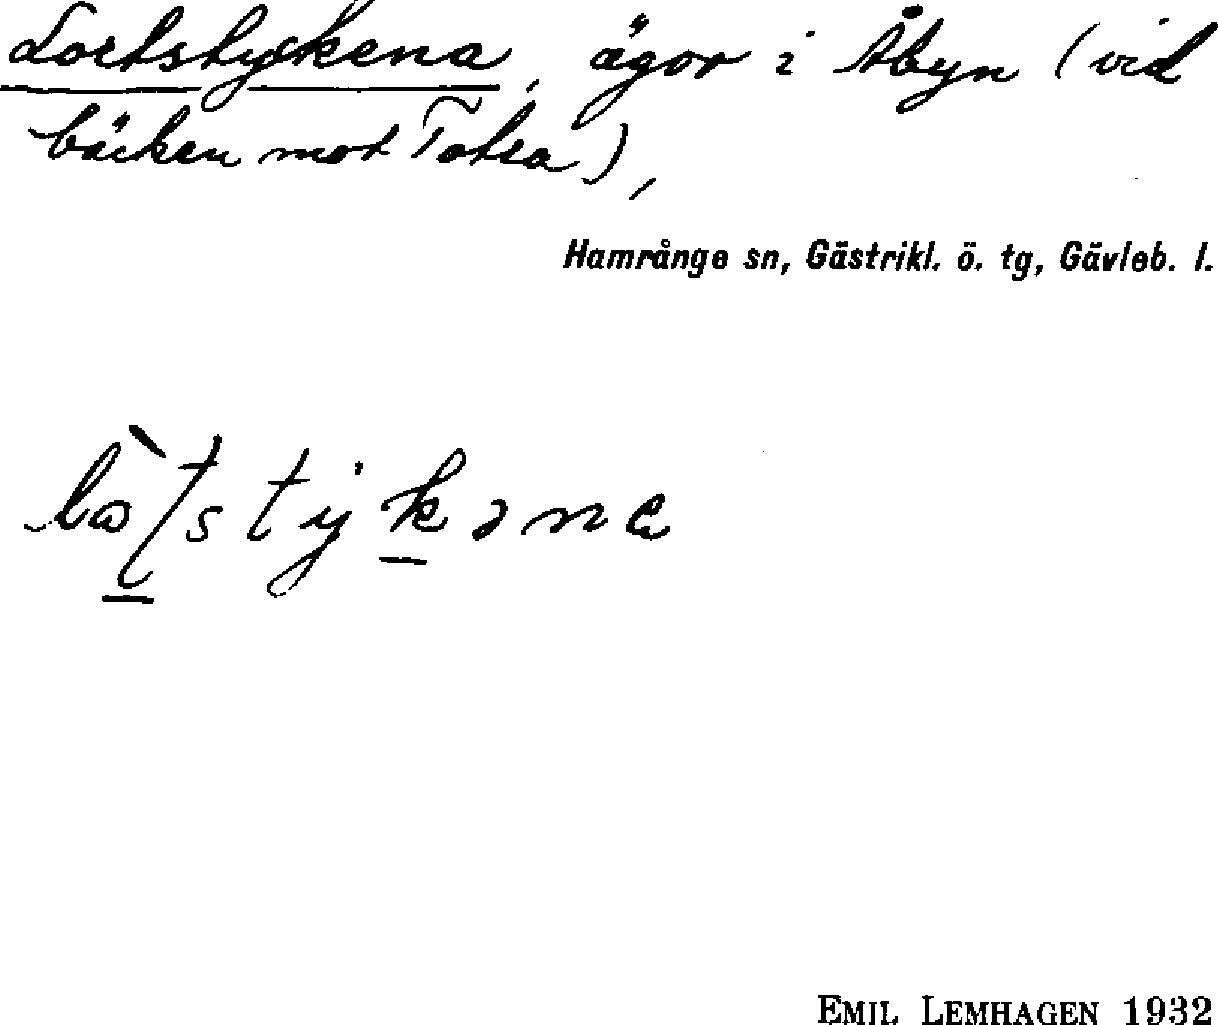 Lortstyckena, ägor i Åbyn (vid
bäcken mot Totra),
Hamrånge sn, Gästrikl. ö. tg, Gävleb. l.
EMIL LEMHAGEN 1932